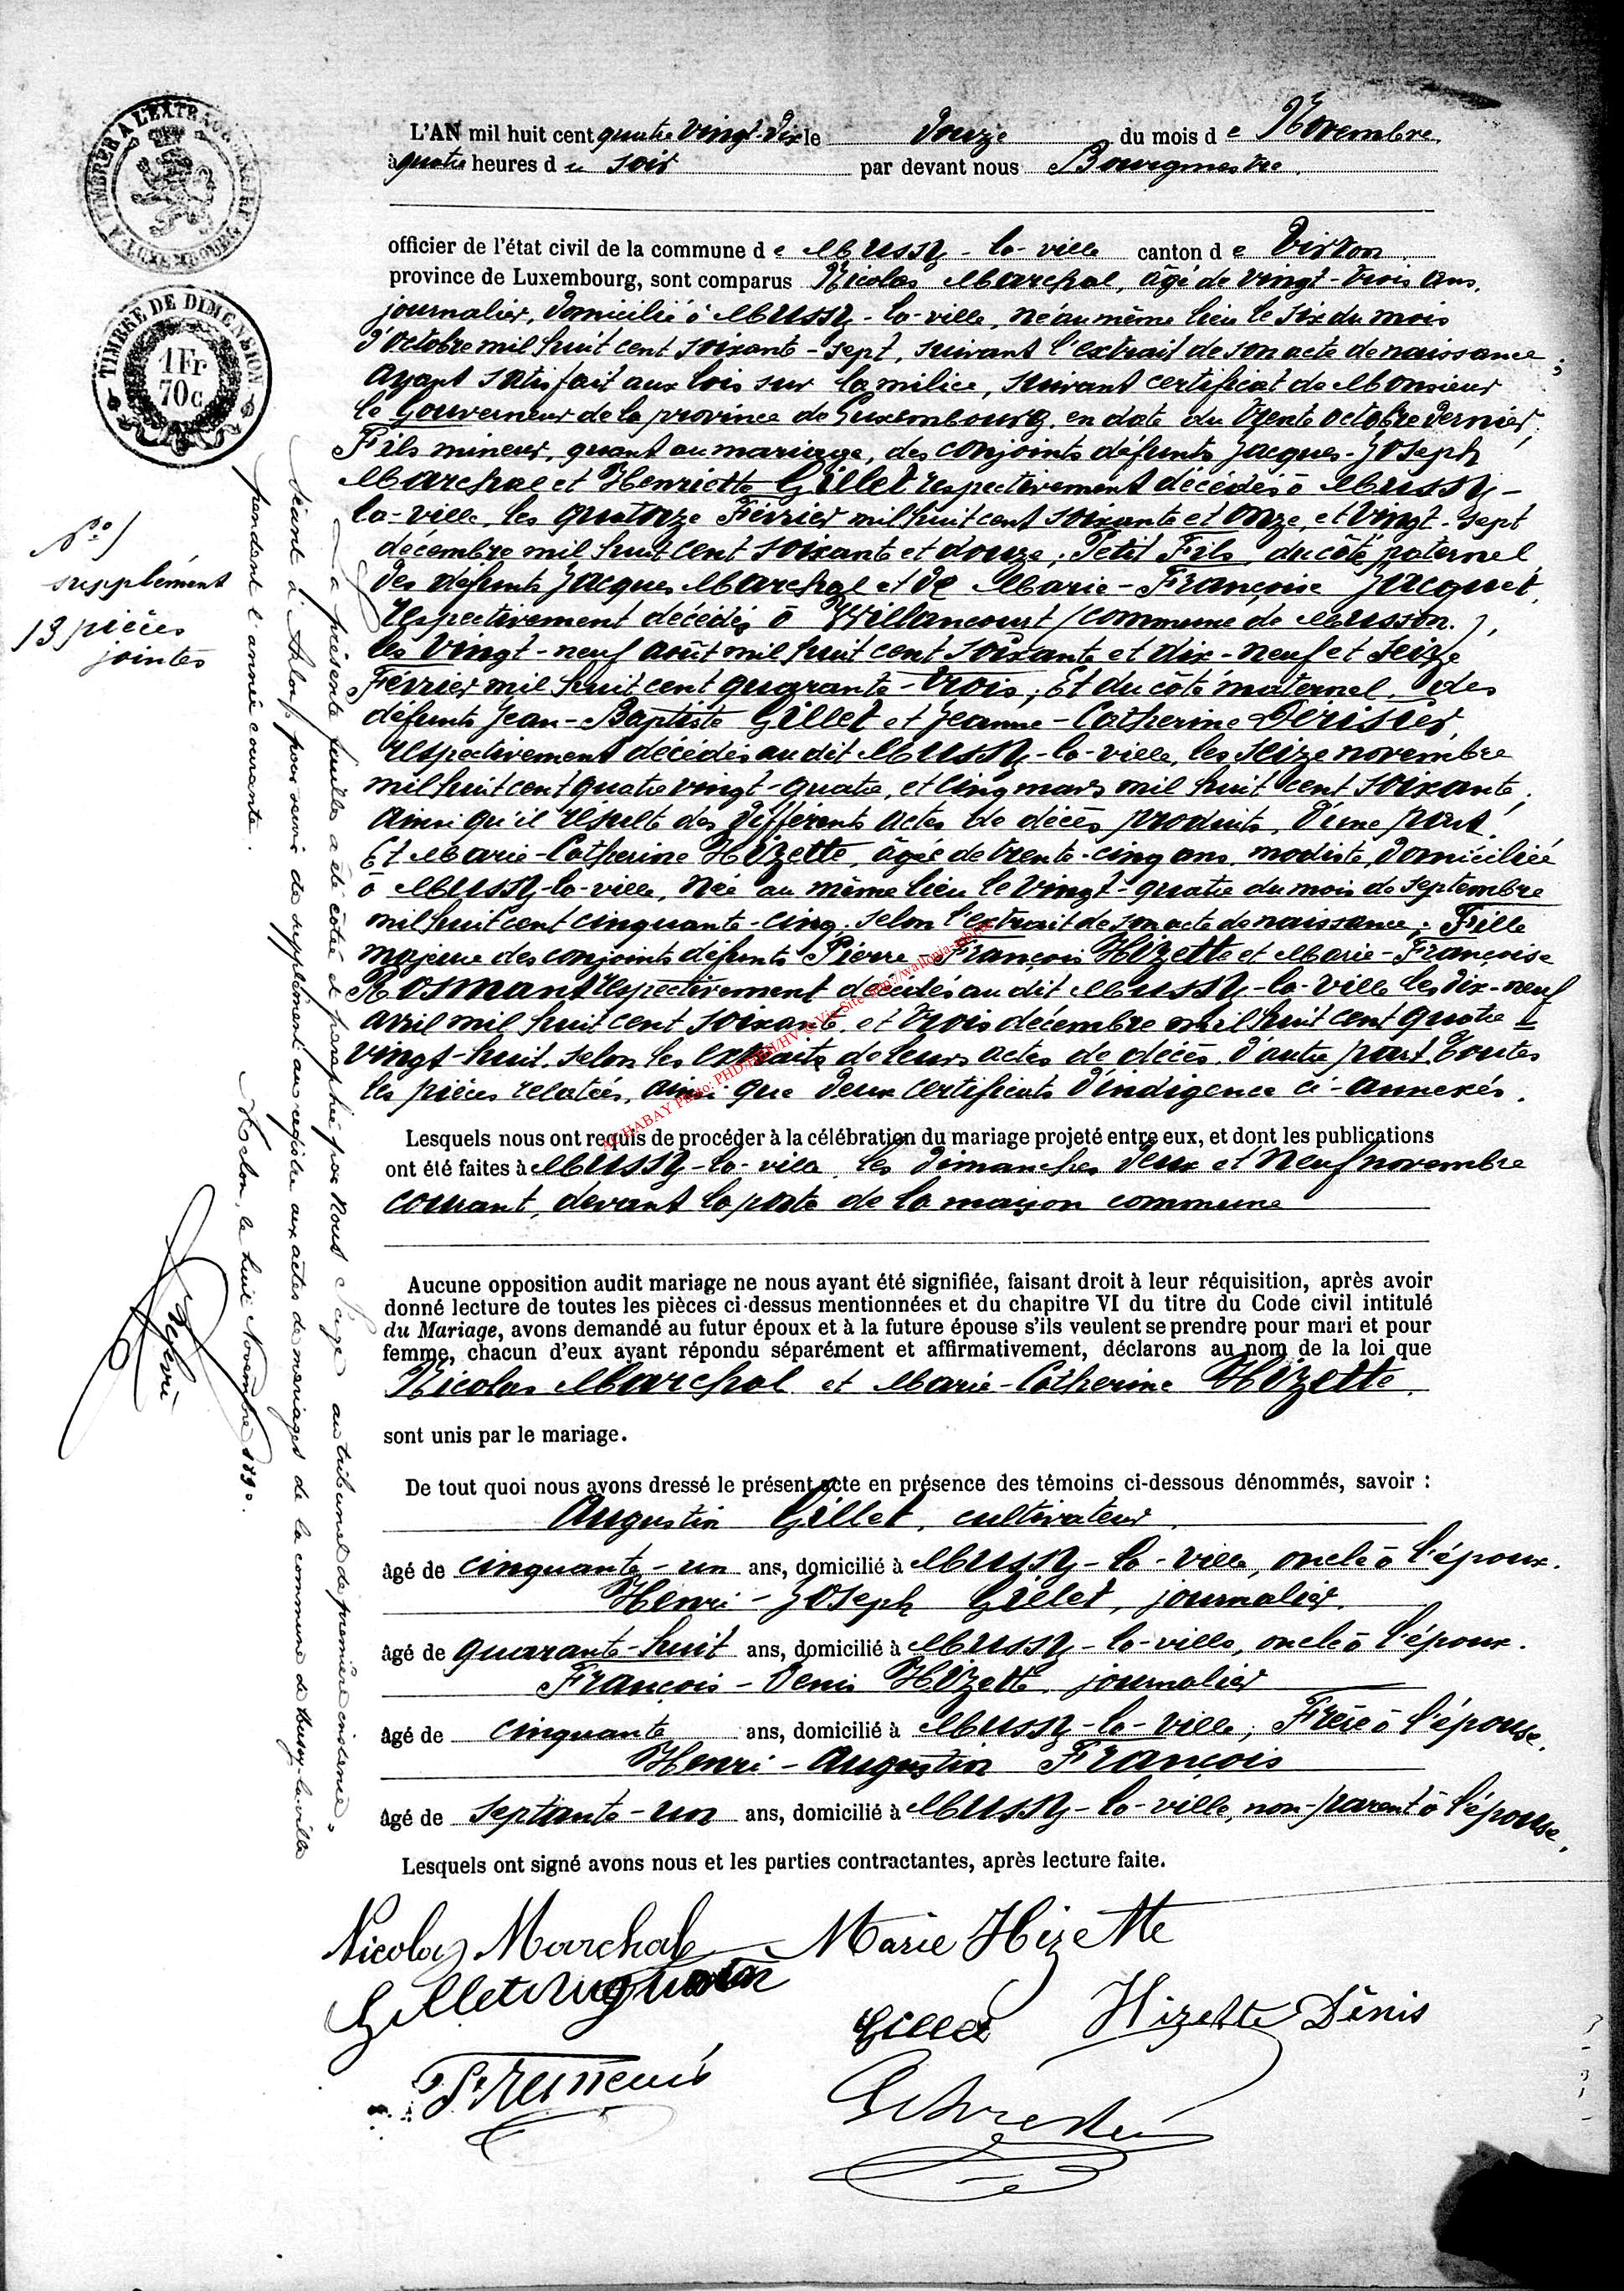 A TIMBRER A L'EXTRAORDINAIRE
LUXEMBOURG
TIMBRE DE DIMENSION
1 Fr
70 c
No 1
supplément
13 pièces
jointes
La présente feuille a été cotée et paraphée par Nous Juge au tribunal de première instance,
séant à Arlon, pour servir de supplément au registre aux actes de mariages de la commune de Mussy-la-ville
pendant l'année courante.
Arlon, le huit Novembre 1890.
L'AN mil huit cent quatre vingt-dix le douze du mois de Novembre
à quatre heures du soir par devant nous Bourgmestre
officier de l'état civil de la commune de Mussy-la-ville canton de Virton
province de Luxembourg, sont comparus Nicolas Marchal, âgé de vingt-trois ans,
journalier, domicilié à Mussy-la-ville, né au même lieu le six du mois
d'octobre mil huit cent soixante-sept, suivant l'extrait de son acte de naissance;
ayant satisfait aux lois sur la milice, suivant certificat de Monsieur
le Gouverneur de la province de Luxembourg, en date du trente octobre dernier;
Fils mineur, quant au mariage, des conjoints défunts Jacques-Joseph
Marchal et Henriette Gillet respectivement décédés à Mussy-
la-ville, les quatorze Février mil huit cent soixante et onze, et vingt-sept
décembre mil huit cent soixante et douze; Petit Fils, du côté paternel,
des défunts Jacques Marchal et de Marie-Françoise Jacquet,
respectivement décédés à Willancourt (commune de Musson.),
les vingt-neuf août mil huit cent soixante et dix-neuf et seize
Février mil huit cent quarante-trois; Et du côté maternel, des
défunts Jean-Baptiste Gillet et Jeanne-Catherine Dérisier,
respectivement décédés au dit Mussy-la-ville, les seize novembre
mil huit cent quatre vingt-quatre, et cinq mars mil huit cent soixante,
ainsi qu'il résulte des différents actes de décès produits, d'une part.
Et Marie-Catherine Hizette, âgée de trente-cinq ans, modiste, domiciliée
à Mussy-la-ville, née au même lieu le vingt-quatre du mois de septembre
mil huit cent cinquante-cinq, selon l'extrait de son acte de naissance; Fille
majeure des conjoints défunts Pierre-François Hizette et Marie-Françoise
Rosmant respectivement décédés au dit Mussy-la-ville les dix-neuf
avril mil huit cent soixante, et trois décembre mil huit cent quatre
vingt-huit, selon les extraits de leurs actes de décès, d'autre part. Toutes
les pièces relatées, ainsi que deux certificats d'indigence ci-annexés.
Lesquels nous ont requis de procéder à la célébration du mariage projeté entre eux, et dont les publications
ont été faites à Mussy-la-ville, les dimanches deux et neuf novembre
courant, devant la porte de la maison commune
Aucune opposition audit mariage ne nous ayant été signifiée, faisant droit à leur réquisition, après avoir
donné lecture de toutes les pièces ci-dessus mentionnées et du chapitre VI du titre du Code civil intitulé
du Mariage, avons demandé au futur époux et à la future épouse s'ils veulent se prendre pour mari et pour
femme, chacun d'eux ayant répondu séparément et affirmativement, déclarons au nom de la loi que
Nicolas Marchal et Marie-Catherine Hizette,
sont unis par le mariage.
De tout quoi nous avons dressé le présent acte en présence des témoins ci-dessous dénommés, savoir :
Augustin Gillet, cultivateur,
âgé de cinquante-un ans, domicilié à Mussy-la-ville, oncle à l'époux.
Henri-Joseph Gillet, journalier,
âgé de quarante-huit ans, domicilié à Mussy-la-ville, oncle à l'époux.
François-Denis Hizette, journalier
âgé de cinquante ans, domicilié à Mussy-la-ville, Frère à l'épouse.
Henri-Augustin François
âgé de septante-un ans, domicilié à Mussy-la-ville, non-parent à l'épouse.
Lesquels ont signé avons nous et les parties contractantes, après lecture faite.
Nicolas Marchal Marie Hizette
Gillet Augustin
Gillet Hizette Dénis